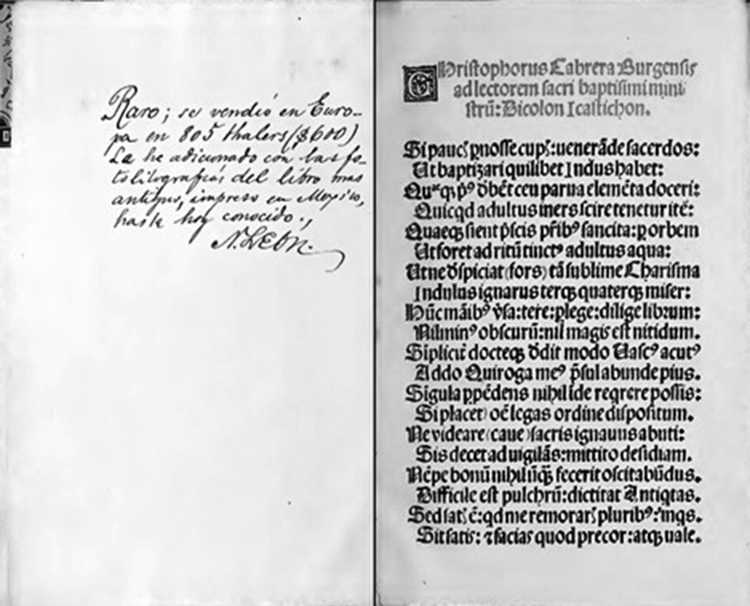 Raro; se vendió en Euro-
pa en 805 thalers ($600)
Le he adicionado con las fo-
tolitografias del libro mas
antiguo, impreso en Mexico,
hasta hoy conocido.,
N. LEON.
Christophorus Cabrera Burgensis
ad lectorem sacri baptismi mini
strū: Dicolon Icastichon.
Si paucꝭ pnosse cupꝭ: venerāde sacerdos:
Ut baptizari quilibet Indus habet:
Quęqꝫ pꝰ dbēt ceu parua elemēta doceri:
Quicqd adultus iners scire tenetur itē:
Quaeqꝫ sient pscis prībꝰ sancita: ꝑ orbem
Ut foret ad ritū tinctꝰ adultus aqua:
Ut ne dspiciat (fors) tā sublime Charisma
Indulus ignarus terqꝫ quaterqꝫ miser:
Hūc māibꝰ vsa: tere: plege: dilige librum:
Nil minꝰ obscurū: nil magis est nitidum.
Simplicīt docteqꝫ ddit modo Vascꝰ acutꝰ
Addo Quiroga meꝰ psul abunde pius.
Sigula ꝑpēdens nihil īde reqrere possis:
Si placet) oē legas ordine dispositum.
Ne videare (caue) sacris ignauus abuti:
Sis decet aduigilās: mittito desidiam.
Nēpe bonū nihil ūqꝫ fecerit oscitabūdus.
Difficile est pulchrū: dictitat Antiqtas.
Sed satꝭ ē: qd me remorarꝭ pluribꝰ: inqs.
Sit satis: ⁊ facias quod precor: atqꝫ vale.